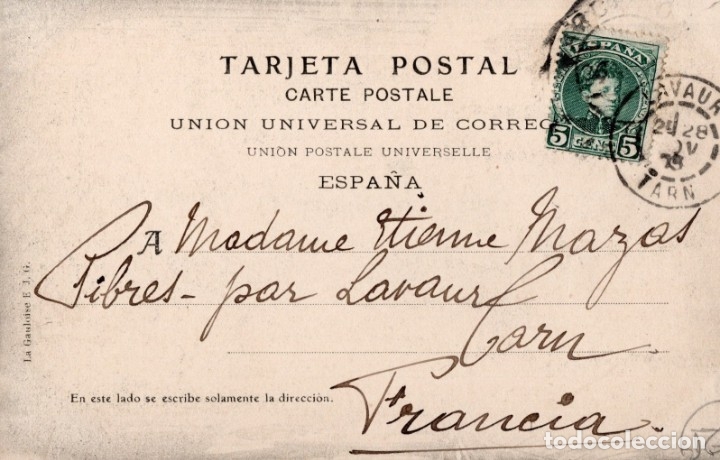 TARJETA POSTAL
CARTE POSTALE
UNION UNIVERSAL DE CORREO
UNION POSTALE UNIVERSELLE
ESPAÑA
A Madame Etienne Mazas
Pibres - par Lavaur
Tarn.
Francia.
En este lado se escribe solamente la dirección.
La Gauloise E. J. G.
ESPAÑA
5 CENT 5
LAVAUR
28
TARN
todocoleccion.net